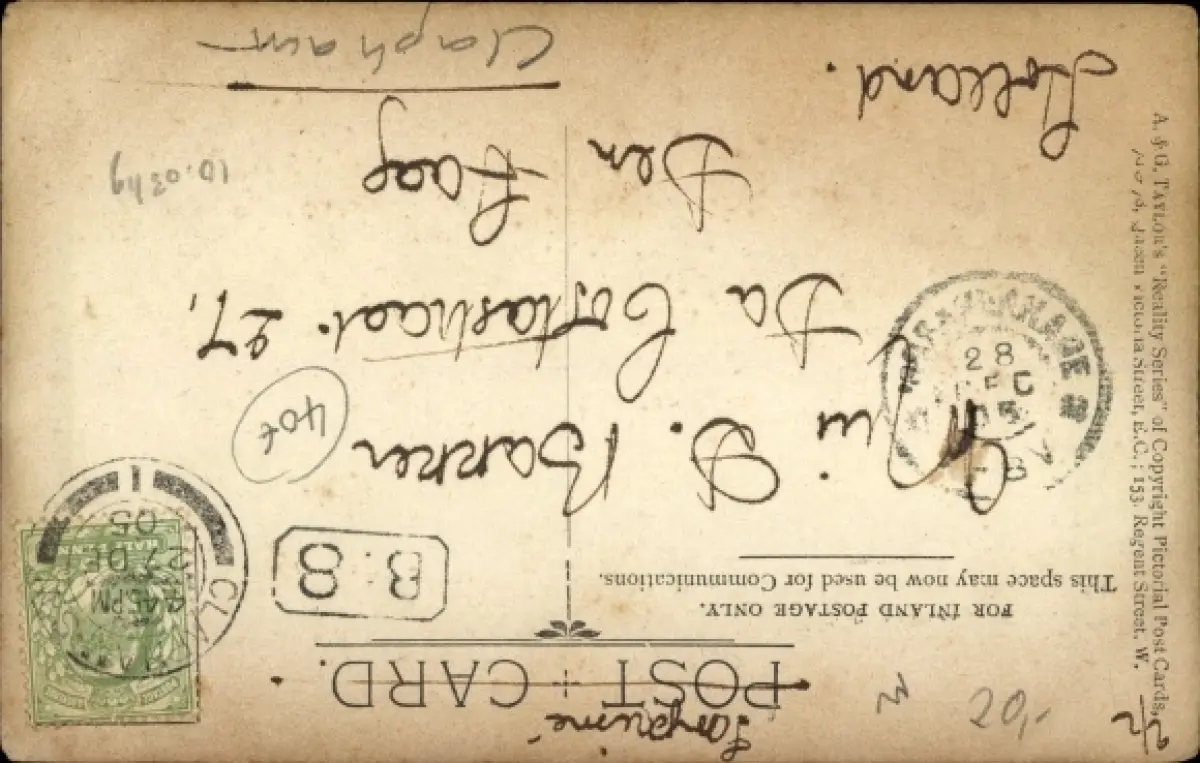 Imprimé
POST CARD.
FOR INLAND POSTAGE ONLY.
This space may now be used for Communications.
B.8
CLAPHAM
4.45PM
27 DE
05
1
HALF
'S GRAVENHAGE 2
28
DEC
05
D. Bakker
Da Costastraat. 27,
Den Haag
Holland.
Clapham
20,-
A. & G. TAYLOR'S "Reality Series" of Copyright Pictorial Post Cards,
Queen Victoria Street, E.C.; 153, Regent Street, W.